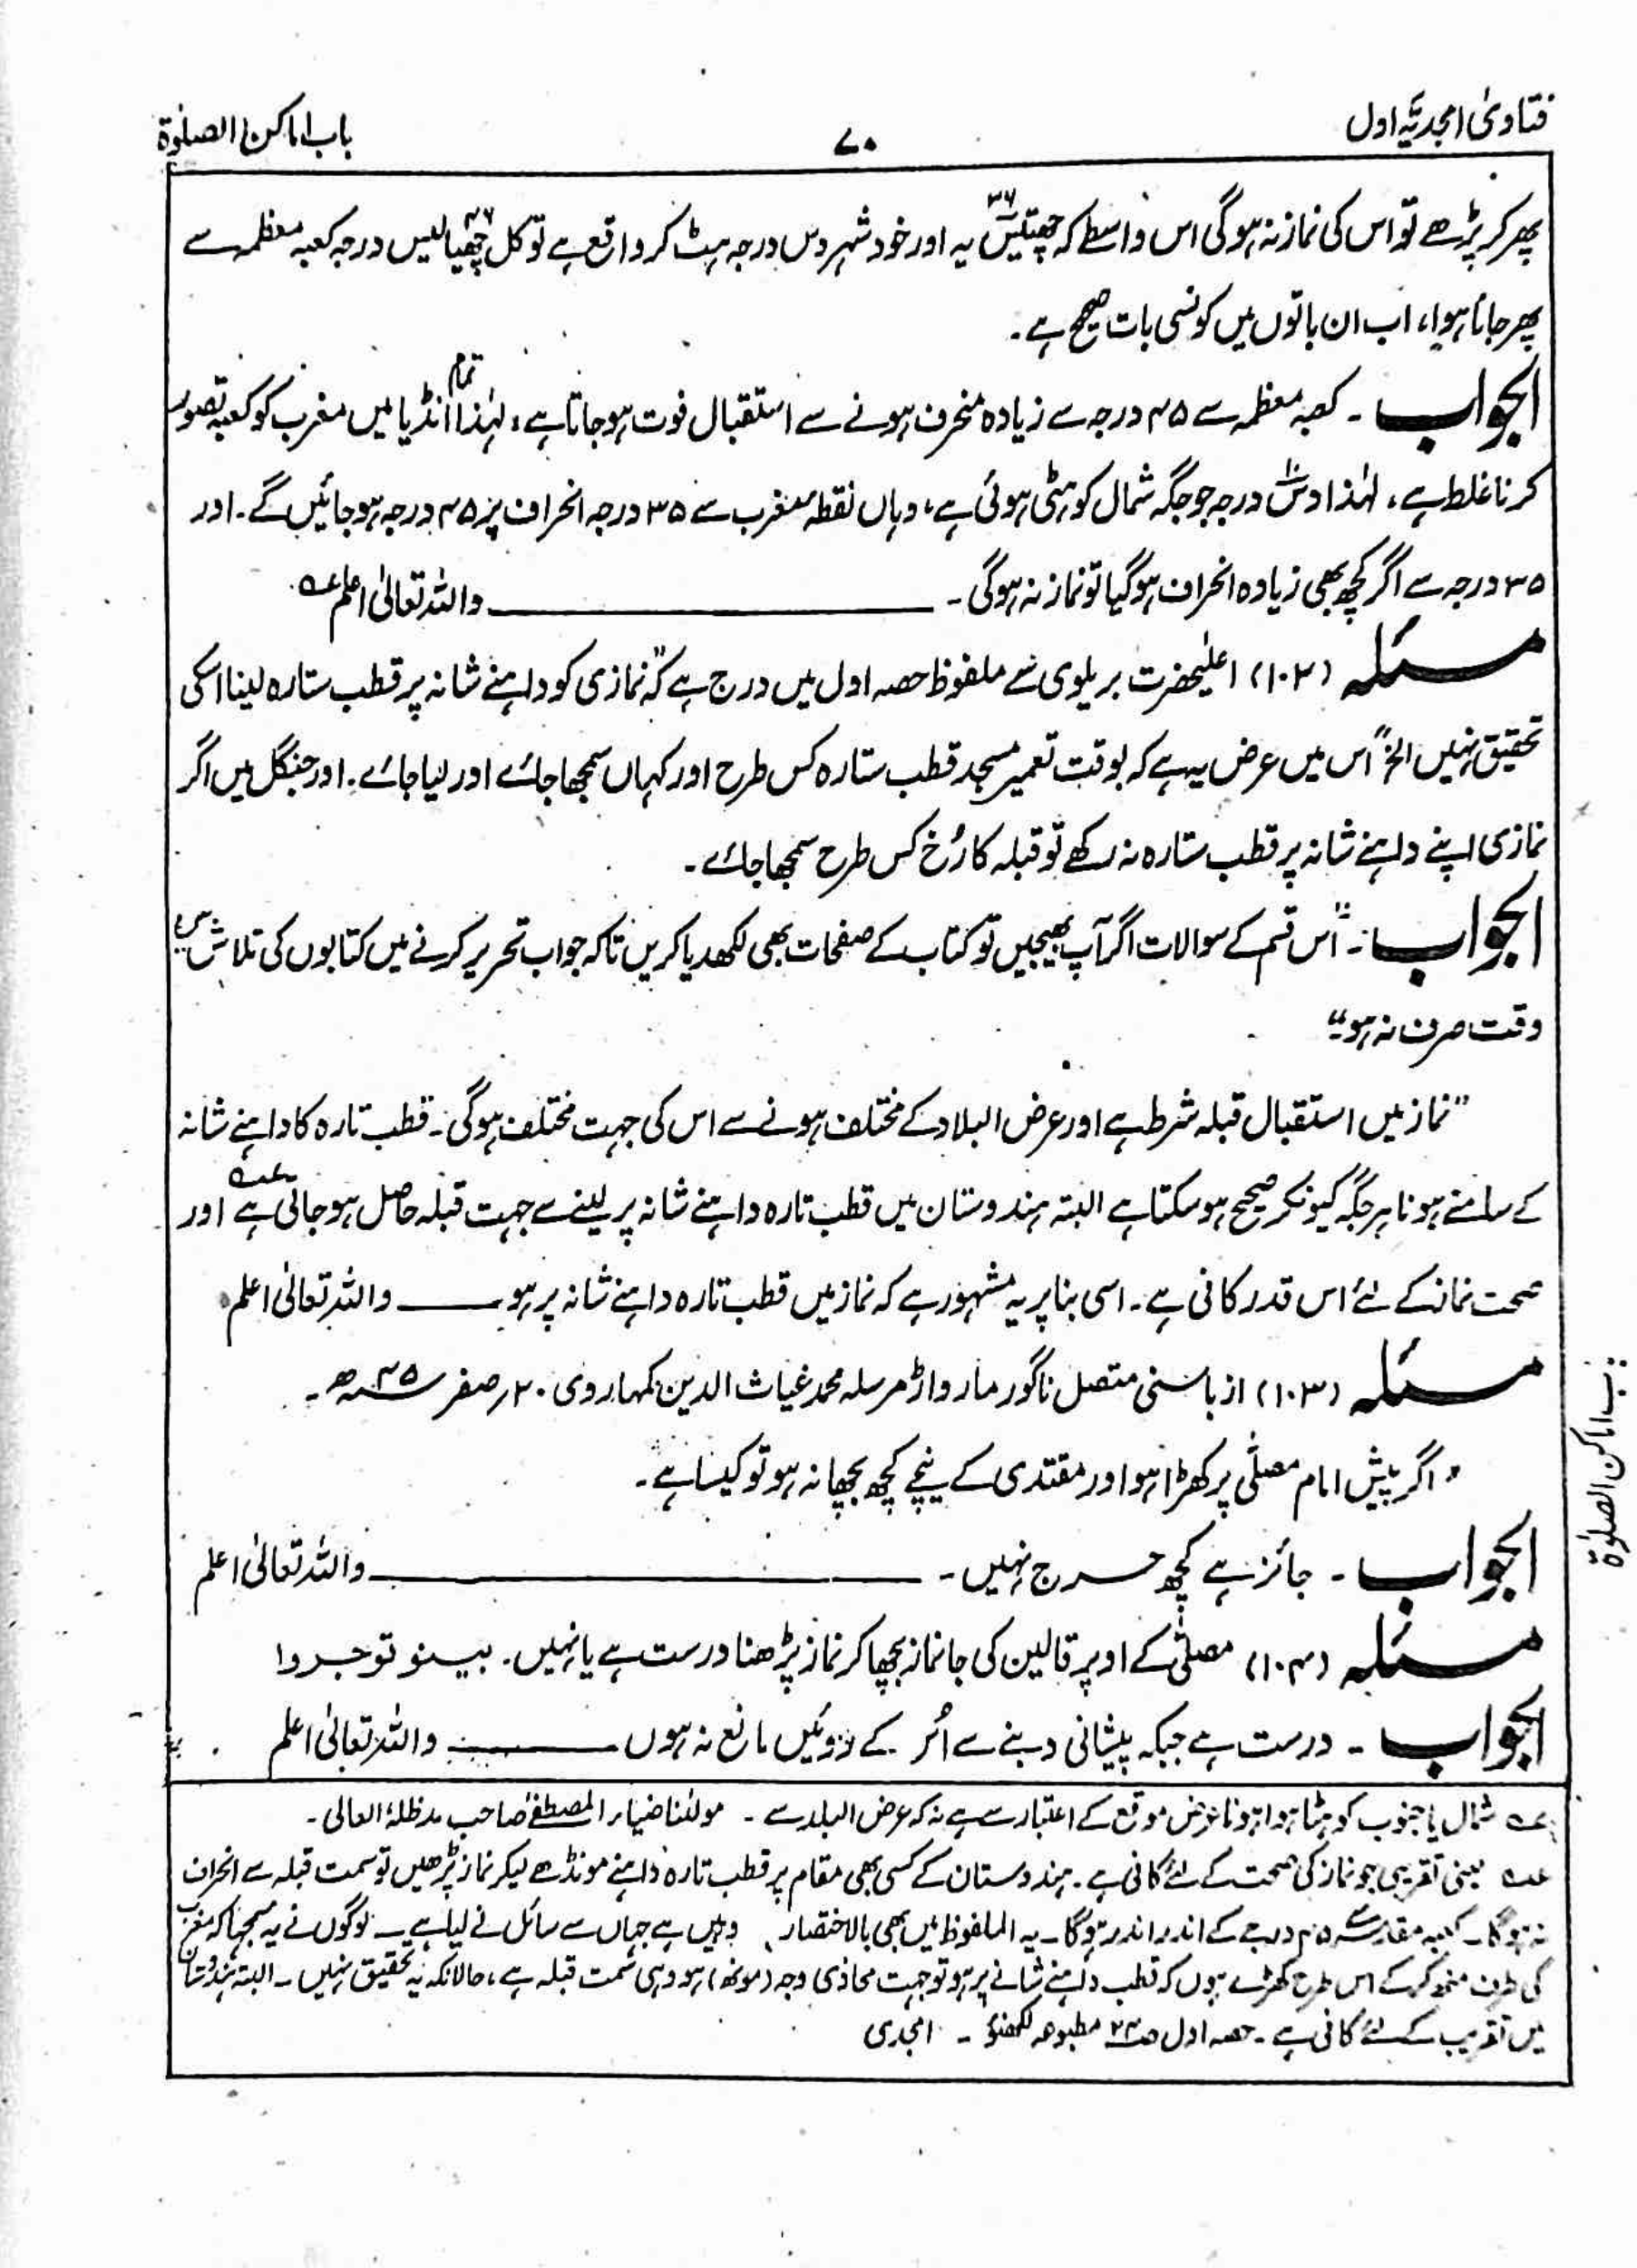 فتاویٰ امجدیہ اول
۷۰
باب اماکن الصلوٰۃ
پھر کر پڑھے تو اس کی نماز نہ ہوگی اس واسطے کہ چھتیس۳۶ یہ اور خود شہر دس درجہ ہٹ کر واقع ہے تو کل چھیالیس۴۶ درجہ کعبہ معظمہ سے
پھر جانا ہوا، اب ان باتوں میں کونسی بات صحیح ہے۔
الجواب ۔ کعبہ معظمہ سے ۴۵ درجہ سے زیادہ منحرف ہونے سے استقبال فوت ہو جاتا ہے، لہٰذا تمام انڈیا میں مغرب کو کعبہ تصور
کرنا غلط ہے، لہٰذا دس۱۰ درجہ جو جگہ شمال کو ہٹی ہوئی ہے، وہاں نقطہ مغرب سے ۳۵ درجہ انحراف پر ۴۵ درجہ ہو جائیں گے۔ اور
۳۵ درجہ سے اگر کچھ بھی زیادہ انحراف ہو گیا تو نماز نہ ہوگی۔ ـــــ واللہ تعالیٰ اعلم عہ
مسئلہ (۱۰۲) اعلیٰحضرت بریلوی کے ملفوظ حصہ اول میں درج ہے کہ "نمازی کو داہنے شانہ پر قطب ستارہ لینا اسکی
تحقیق نہیں الخ" اس میں عرض یہ ہے کہ بوقت تعمیر مسجد قطب ستارہ کس طرح اور کہاں سمجھا جائے اور لیا جائے۔ اور جنگل میں اگر
نمازی اپنے داہنے شانہ پر قطب ستارہ نہ رکھے تو قبلہ کا رُخ کس طرح سمجھا جائے۔
الجواب ۔ "اس قسم کے سوالات اگر آپ بھیجیں تو کتاب کے صفحات بھی لکھدیا کریں تاکہ جواب تحریر کرنے میں کتابوں کی تلاش میں
وقت صرف نہ ہو"
"نماز میں استقبال قبلہ شرط ہے اور عرض البلاد کے مختلف ہونے سے اس کی جہت مختلف ہوگی۔ قطب تارہ کا داہنے شانہ
کے سامنے ہونا ہر جگہ کیونکر صحیح ہو سکتا ہے البتہ ہندوستان میں قطب تارہ داہنے شانہ پر لینے سے جہت قبلہ حاصل ہو جاتی ہے عہ اور
صحت نماز کے لئے اس قدر کافی ہے۔ اسی بنا پر یہ مشہور ہے کہ نماز میں قطب تارہ داہنے شانہ پر ہو ـــــ واللہ تعالیٰ اعلم
مسئلہ (۱۰۳) از باسنی متصل ناگور مارواڑ مرسلہ محمد غیاث الدین کمہاروی ۲۰ صفر ۴۵ھ۔
اگر پیش امام مصلّٰی پر کھڑا ہو اور مقتدی کے نیچے کچھ بچھا نہ ہو تو کیسا ہے۔
الجواب ۔ جائز ہے کچھ حرج نہیں۔ ـــــ واللہ تعالیٰ اعلم
مسئلہ (۱۰۴) مصلّٰی کے اوپر قالین کی جانماز بچھا کر نماز پڑھنا درست ہے یا نہیں۔ بینو توجروا
الجواب ۔ درست ہے جبکہ پیشانی دبنے سے اُس کے روئیں مانع نہ ہوں ـــــ واللہ تعالیٰ اعلم
عہ شمال یا جنوب کو ہٹا ہوا ہونا عرض موقع کے اعتبار سے ہے نہ کہ عرض البلد سے ۔ مولٰنا ضیاء المصطفےٰ صاحب مدظلہٗ العالی۔
عہ یعنی تقریبی جو نماز کی صحت کے لئے کافی ہے۔ ہندوستان کے کسی بھی مقام پر قطب تارہ داہنے مونڈھے لیکر نماز پڑھیں تو سمت قبلہ سے انحراف
نہ ہوگا۔ کعبہ مقدسہ ۴۵ درجے کے اندر اندر ہوگا۔ یہ الملفوظ میں بھی بالاختصار وہیں ہے جہاں سے سائل نے لیا ہے ۔ لوگوں نے یہ سمجھا کہ مغرب
کی طرف منھ کر کے اس طرح کھڑے ہوں کہ قطب داہنے شانے پر ہو تو جہت محاذی وجہ (مونھ) ہو وہی سمت قبلہ ہے، حالانکہ یہ تحقیق نہیں ۔ البتہ ہندوستان
میں تقریب کے لئے کافی ہے ۔ حصہ اول مطبوعہ لکھنؤ ۔ امجدی
باب اماکن الصلوٰۃ